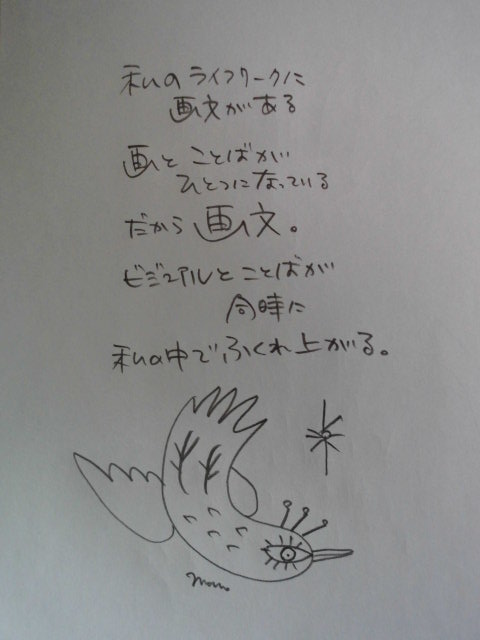 私のライフワークに
画文がある
画と ことばが
ひとつになっている
だから 画文。
ビジュアルと ことばが
同時に
私の中で ふくれ上がる。
momo